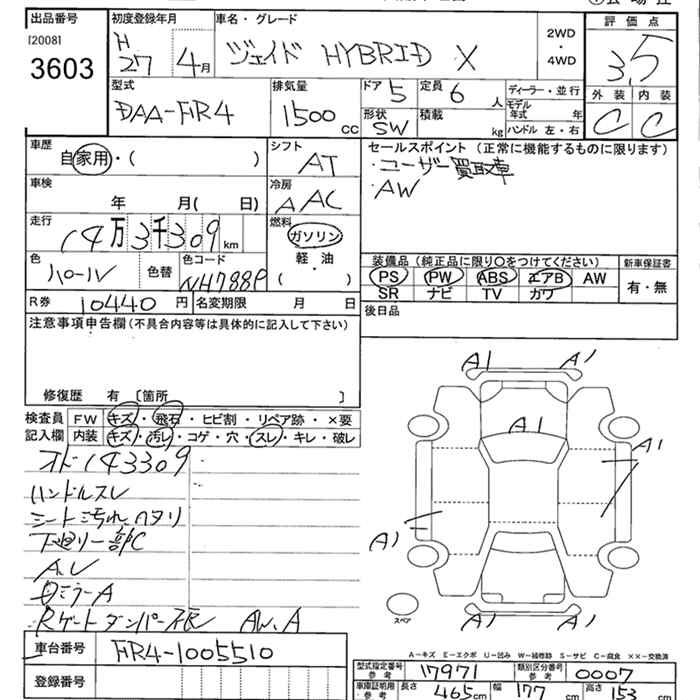 出品番号 初度登録年月 車名・グレード 評価点
[2008]
3603
H 27 4月 ジェイド HYBRID X 2WD・4WD 3.5
型式 排気量 ドア 5 定員 6人 ディーラー・並行 外装 内装
DAA-FR4 1500cc 形状 SW 積載 kg モデル年式 年 C C
ハンドル 左・右
車歴 シフト セールスポイント (正常に機能するものに限ります)
自家用・( ) AT ・ユーザー買取車
車検 冷房 ・AW
年 月( 日) AAC
走行 燃料
14万3千309km ガソリン
色 色替 色コード 軽油 装備品(純正品に限り○をつけてください) 新車保証書
パール NH788P ( ) PS PW ABS エアB AW 有・無
R券 10440円 名変期限 月 日 SR ナビ TV カワ
注意事項申告欄(不具合内容等は具体的に記入して下さい) 後日品
修復歴 有 [箇所 ]
検査員 FW キズ・飛石・ヒビ割・リペア跡・×要
記入欄 内装 キズ・汚レ・コゲ・穴・スレ・キレ・破レ
オド143309
ハンドルスレ
シート汚れ ヘタリ
下廻リ一部C
A.U
Rゲートダンパー不良 AW.A
A1 A1
A1
A1
A1
A1 A1
スペア
A-キズ E-エクボ U-凹み W-補修跡 S-サビ C-腐食 ××-交換済
車台番号 FR4-1005510
登録番号
型式指定番号 参考 17971 類別区分番号 参考 0007
車庫証明用・参考 長さ 465cm 幅 177cm 高さ 153cm